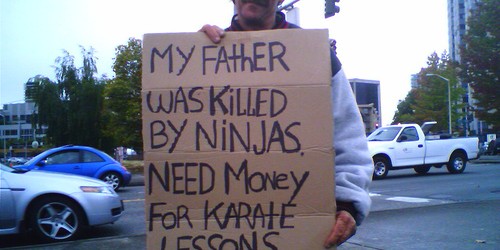 MY FATHER
WAS KILLED
BY NINJAS.
NEED MONEY
FOR KARATE
LESSONS